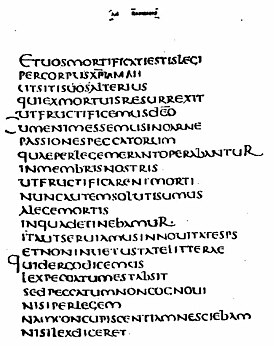 AD
ETUOSMORTIFICATIESTISLEGI
PERCORPUSXPIAMAII
UTSITISUOSALTERIUS
QUIEXMORTUISRESURREXIT
UTFRUCTIFICEMUSDEO
CUMENIMESSEMUSINCARNE
PASSIONESPECCATORUM
QUAEPERLEGEMERANTOPERABANTUR
INMEMBRISNOSTRIS
UTFRUCTIFICARENTMORTI
NUNCAUTEMSOLUTISUMUS
ALEGEMORTIS
INQUADETINEBAMUR
ITAUTSERUIAMUSINNOUITATESPS
ETNONINUETUSTATELITTERAE
QUIDERGODICEMUS
LEXPECCATUMESTABSIT
SEDPECCATUMNONCOGNOUI
NISIPERLEGEM
NAMCONCUPISCENTIAMNESCIEBAM
NISILEXDICERET